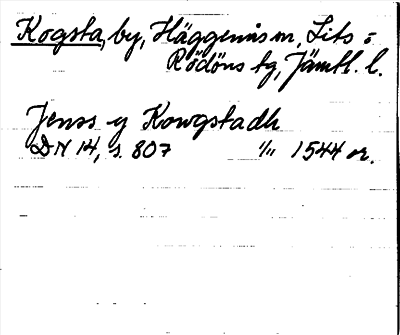 Kogsta, by, Häggenås sn, Lits o
Rödöns tg, Jämtl. l.
Jenss y Kowgstadh
DN 14, s. 807 1/11 1544 or.